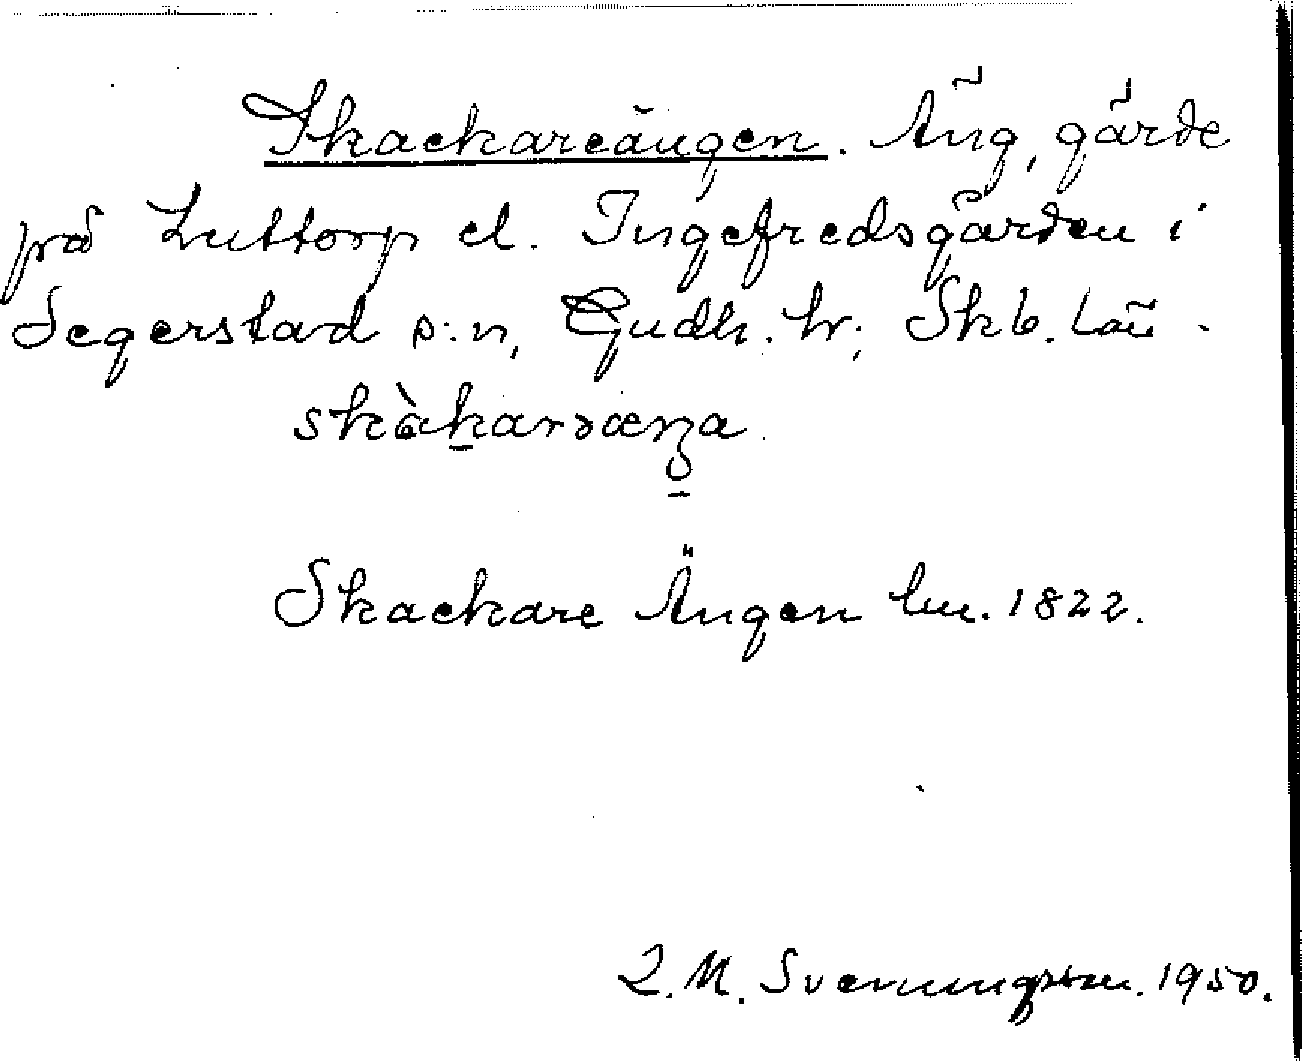 Skackareängen. Äng, gärde
på Luttorp el. Ingefredsgården i
Segerstad s:n, Gudh. hr; Skb. län.
skàkarɔæŋa
Skackare Ängen lm. 1822.
L. M. Svenungsson. 1950.